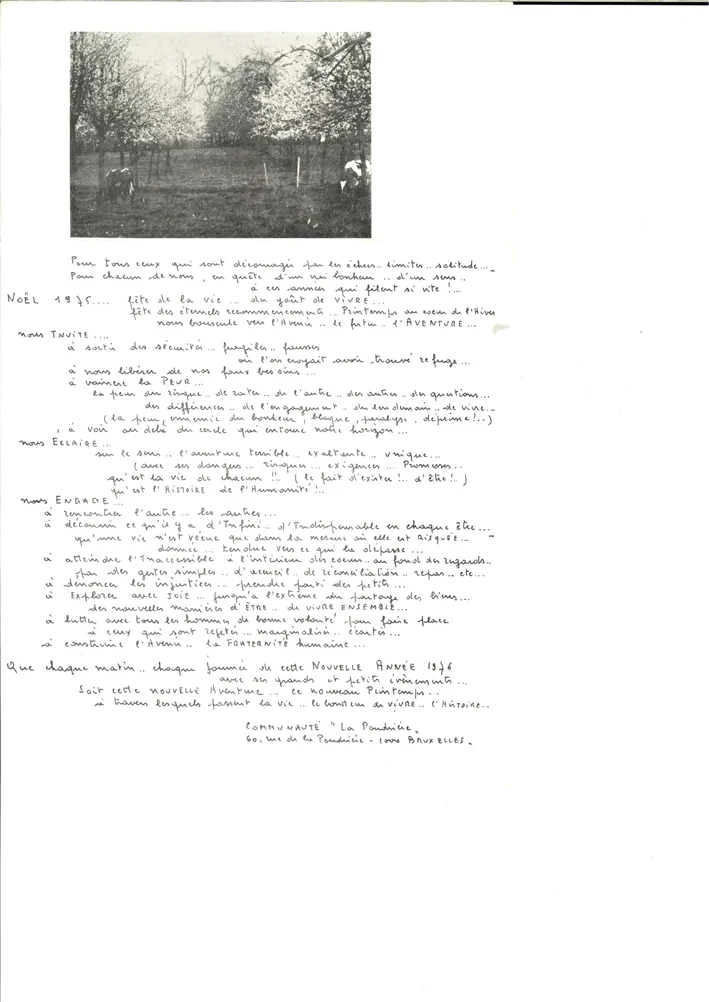 Pour tous ceux qui sont découragés par les échecs.. limites.. solitude...
Pour chacun de nous, en quête d'un vrai bonheur.. d'un sens..
à ces années qui filent si vite !...
NOËL 1975.... fête de la vie... du goût de VIVRE...
fête des éternels recommencements... Printemps au coeur de l'Hiver
nous bouscule vers l'Avenir.. le futur.. l'AVENTURE...
nous INVITE....
à sortir des sécurités... fragiles.. fausses
où l'on croyait avoir trouvé refuge...
à nous libérer de nos faux besoins...
à vaincre la PEUR...
la peur du risque.. de rater.. de l'autre.. des autres.. des questions...
des différences.. de l'engagement.. du lendemain.. de vivre..
(la peur, ennemie du bonheur, bloque, paralyse, déprime !..)
à voir au delà du cercle qui entoure notre horizon...
nous ECLAIRE...
sur le sens.. l'aventure terrible.. exaltante.. unique...
(avec ses dangers... risques... exigences... Promesses..
qu'est la vie de chacun !! (le fait d'exister !.. d'être !..)
qu'est l'HISTOIRE de l'Humanité !..
nous ENGAGE...
à rencontrer l'autre... les autres...
à découvrir ce qu'il y a d'Infini.. d'Indispensable en chaque être...
qu'une vie n'est vécue que dans la mesure où elle est RISQUÉE..
donnée... tendue vers ce qui la dépasse...
à atteindre l'Inaccessible à l'intérieur des coeurs.. au fond des regards..
par des gestes simples.. d'accueil.. de réconciliation.. repas.. etc...
à dénoncer les injustices... prendre parti des petits...
à EXPLORER avec JOIE... jusqu'à l'extrême du partage des biens...
des nouvelles manières d'ÊTRE.. de VIVRE ENSEMBLE...
à lutter avec tous les hommes de bonne volonté pour faire place
à ceux qui sont rejetés... marginalisés.. écartés...
à construire l'Avenir.. la FRATERNITÉ humaine...
Que chaque matin.. chaque journée de cette NOUVELLE ANNÉE 1976
avec ses grands et petits évènements...
Soit cette NOUVELLE Aventure... ce nouveau Printemps...
à travers lesquels passent la vie... le bonheur de VIVRE.. l'HISTOIRE..
COMMUNAUTÉ "La Poudrière„
60, rue de la Poudrière - 1000 BRUXELLES.